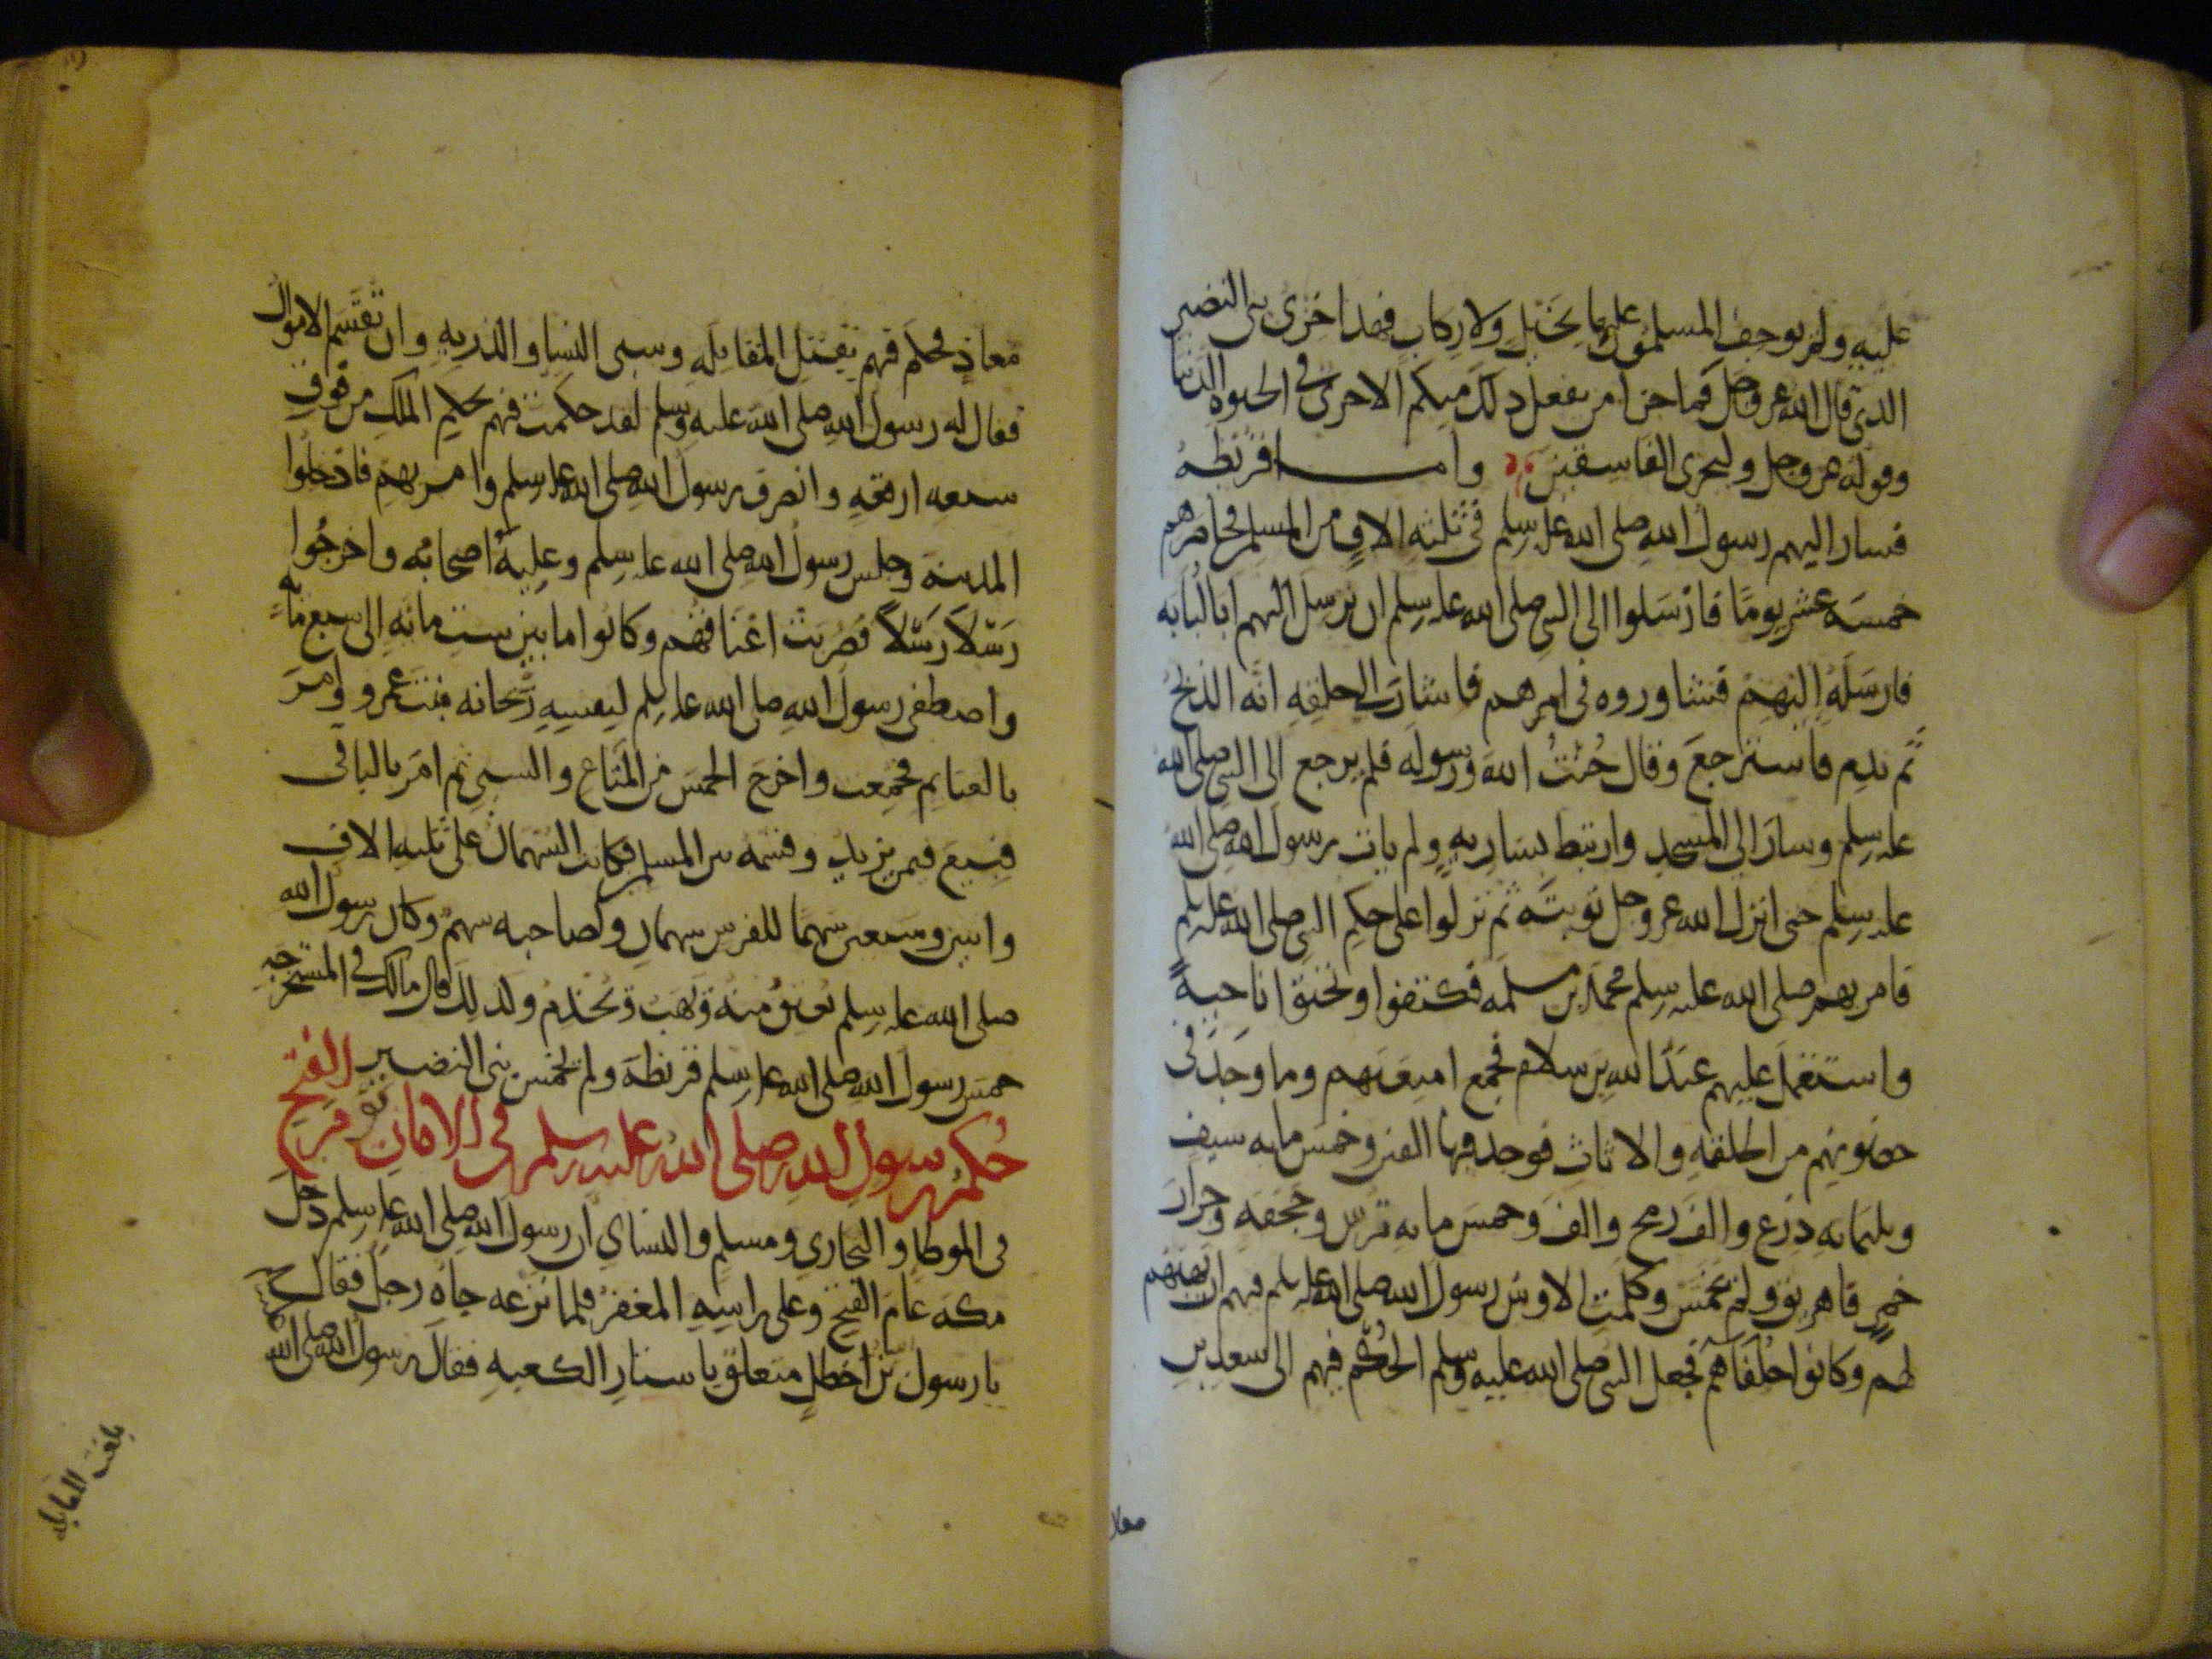 عليه ولم يوجف المسلمون عليها بخيل ولا ركاب فهذا خزى بنى النضير
الذى قال الله عز وجل فما جزا من يفعل ذلك منكم الا خزى فى الحيوة الدنيا
وقوله عز وجل وليخزى الفاسقين وامـــا قريظة
فسار اليهم رسول الله صلى الله عليه وسلم فى ثلثة الاف من المسلمين فحاصرهم
خمسة عشر يوما فارسلوا الى النبى صلى الله عليه وسلم ان يرسل اليهم ابا لبابه
فارسله اليهم فتشاوروه فى امرهم فاشار الى حلقه انه الذبح
ثم ندم فاسترجع وقال خنت الله ورسوله فلم يرجع الى النبى صلى الله
عليه وسلم وسار الى المسجد وارتبط بساريه ولم يات رسول الله صلى الله
عليه وسلم حتى انزل الله عز وجل توبته ثم نزلوا على حكم النبى صلى الله عليه وسلم
فامر بهم صلى الله عليه وسلم محمد بن مسلمه فكتفوا ونحوا ناحية
واستعمل عليهم عبد الله بن سلام فجمع امتعتهم وما وجد فى
حصونهم من الحلقه والاثاث فوجد فيها الف وخمس مايه سيف
وثلثمايه درع والف رمح والف وخمس مايه ترس وجحفه وجرار
خمر فاهريق ولم تخمس وكلمت الاوس رسول الله صلى الله عليه وسلم فيهم ان يهبهم
لهم وكانوا حلفاهم فجعل النبى صلى الله عليه وسلم الحكم فيهم الى سعد بن
معاذ
معاذ فحكم فيهم بقتل المقاتله وسبى النسا والذريه وان تقسم الاموال
فقال له رسول الله صلى الله عليه وسلم لقد حكمت فيهم بحكم الملك من فوق
سبعه ارقعه وانصرف رسول الله صلى الله عليه وسلم وامر بهم فادخلوا
المدينه وجلس رسول الله صلى الله عليه وسلم وعليه اصحابه واخرجوا
رسلا رسلا فضربت اعناقهم وكانوا ما بين ست مائه الى سبع مائه
واصطفى رسول الله صلى الله عليه وسلم لنفسه ريحانه بنت عمرو وامر
بالغنايم فجمعت واخرج الخمس من المتاع والسبى ثم امر بالباقى
فبيع فيمن يزيد وقسمه بين المسلمين فكانت السهمان على ثلثه الاف
واثنين وسبعين سهما للفرس سهمان ولصاحبه سهم وكان رسول الله
صلى الله عليه وسلم يعتق منه ويهب ويخدم ولذلك قال مالك فى المستخرجه
خمس رسول الله صلى الله عليه وسلم قريظة ولم تخمس بنى النضير
حكم رسول الله صلى الله عليه وسلم فى الامان يوم الفتح
فى الموطا والبخارى ومسلم والنساى ان رسول الله صلى الله عليه وسلم دخل
مكه عام الفتح وعلى راسه المغفر فلما نزعه جاه رجل فقال
يا رسول بن اخطل متعلق باستار الكعبه فقال رسول الله صلى الله
بلغت المقابله